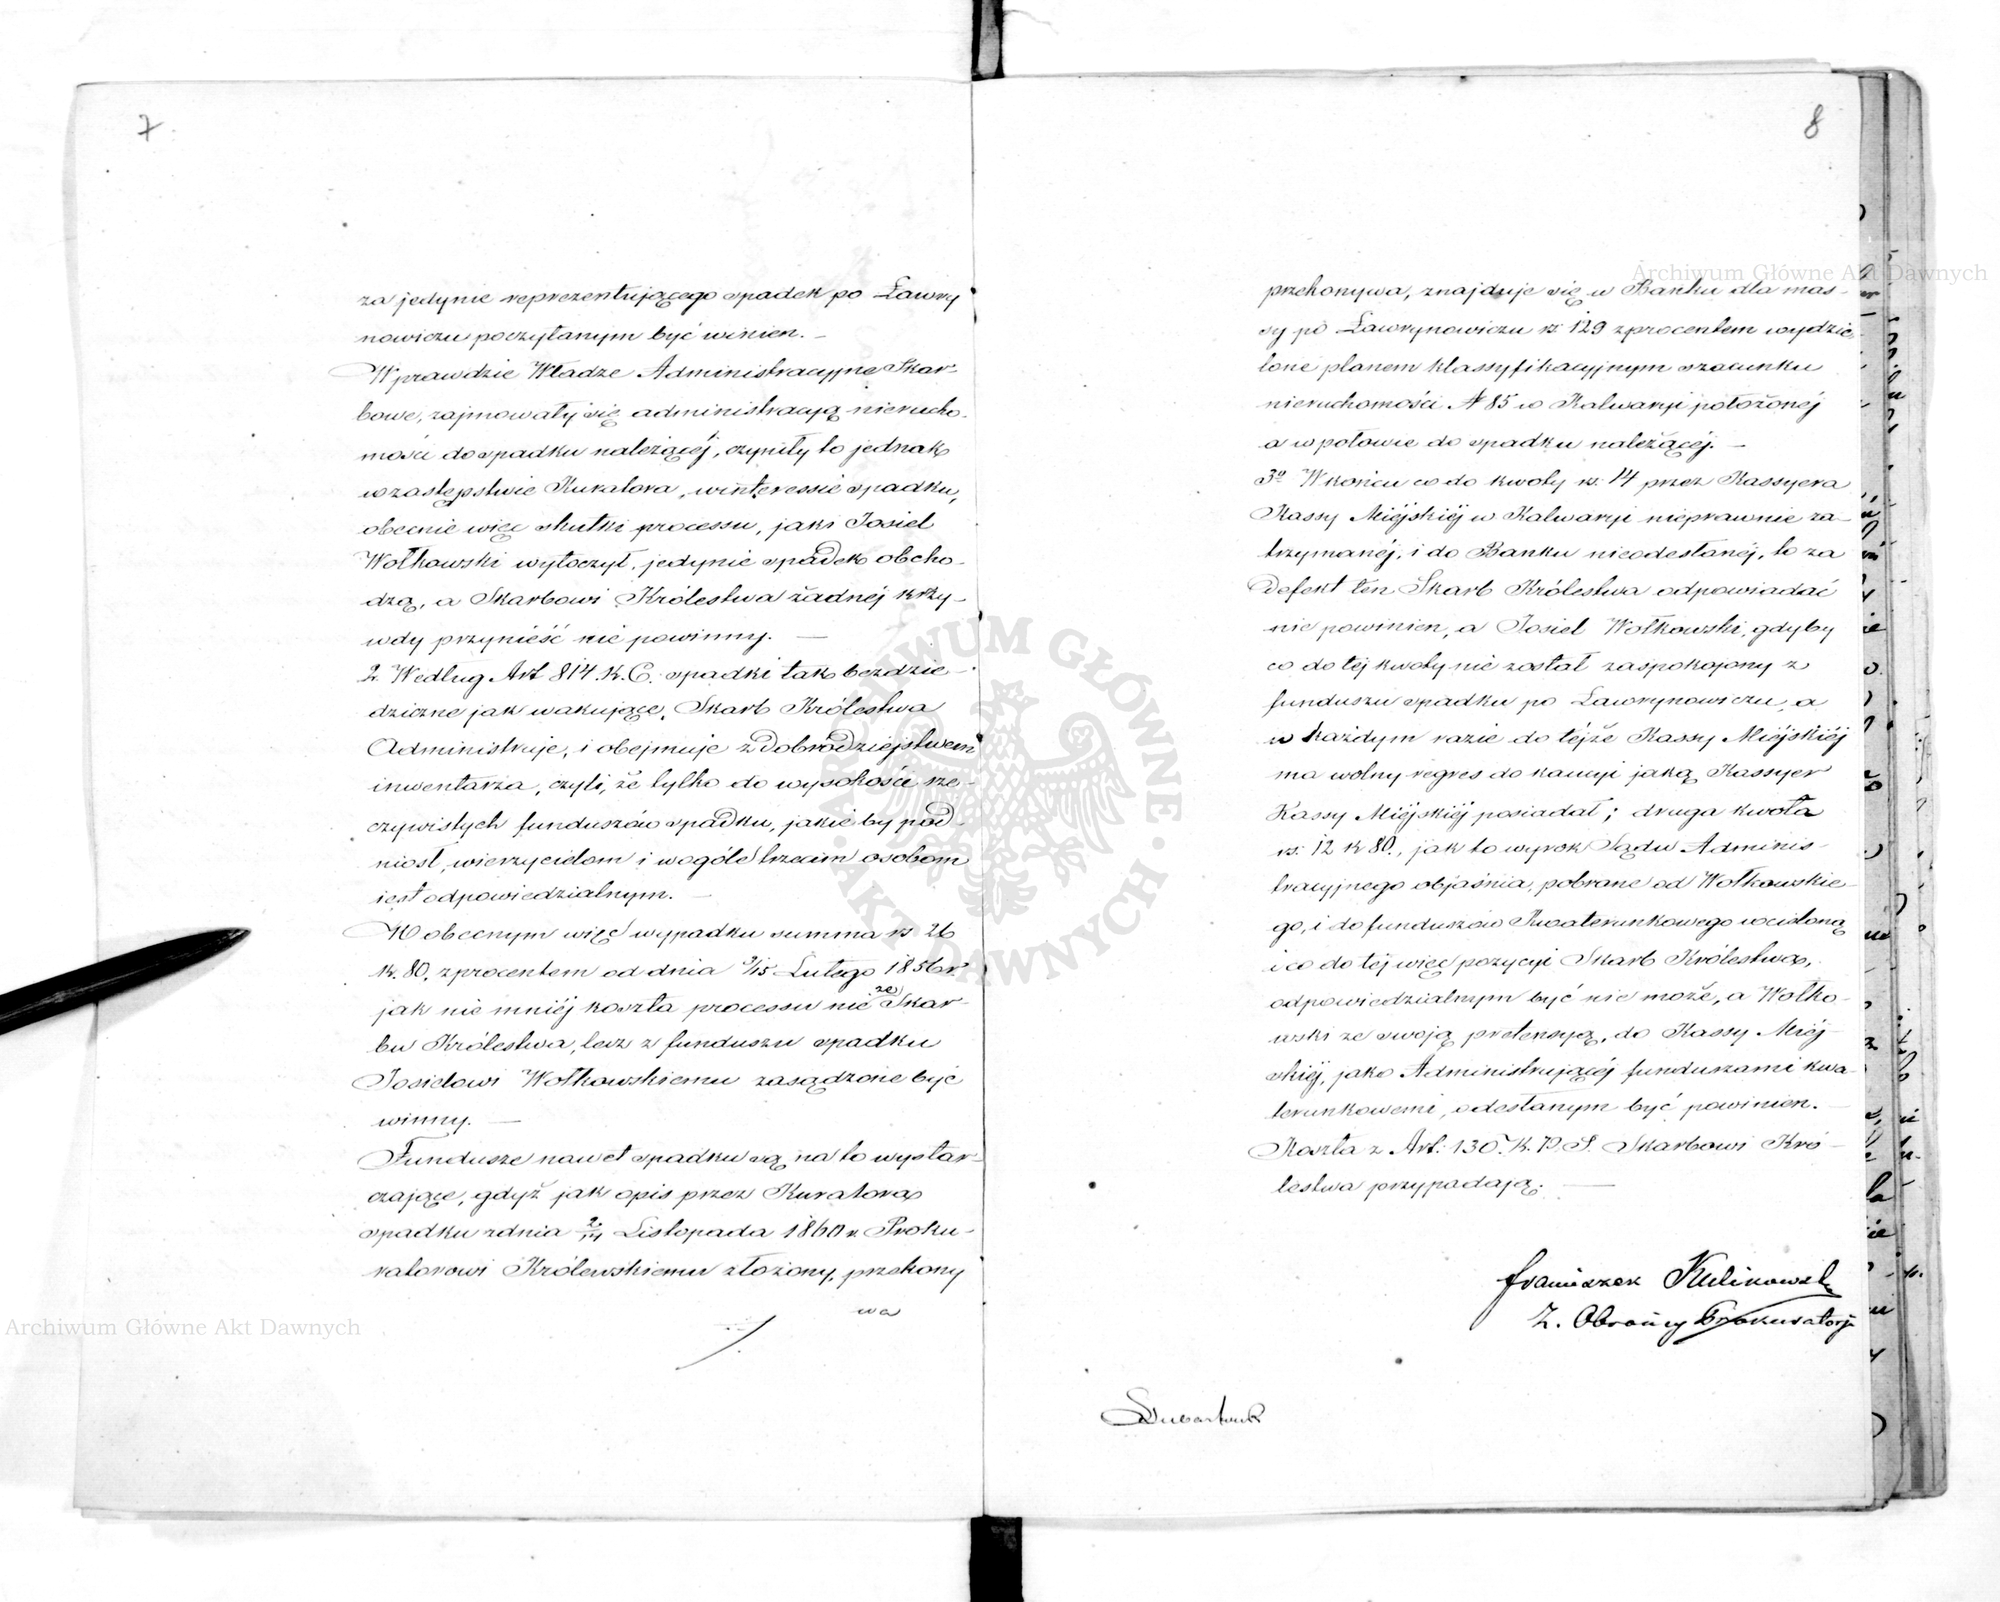 7
za jedynie reprezentującego spadek po Ławry
nowiczu poczytanym być winien. —
Wprawdzie Władze Administracyjne Skar-
bowe, zajmowały się administracyą nierucho-
mości do spadku należącéj, czyniły to jednak
w zastępstwie Kuratora, w interessie spadku,
obecnie więc skutki processu, jaki Josiel
Wołkowski wytoczył, jedynie spadek obcho-
dzą, a Skarbowi Królestwa żadnéj krzy-
wdy przynieść nie powinny. —
2. Według Art 814. K. C. spadki tak bezdzie-
dziczne jak wakujące, Skarb Królestwa
Administruje, i obejmuje z dobrodziejstwem
inwentarza, czyli, że tylko do wysokości rze-
czywistych funduszów spadku, jakie by pod-
niosł, wierzycielom i wogóle trzecim osobom
jest odpowiedzialnym. —
W obecnym więc wypadku summa rs 26
k. 80, z procentem od dnia 3/15 Lutego 1856 r.
jak nie mniéj koszta processu nie ze Skar-
bu Królestwa, lecz z funduszu spadku
Josielowi Wołkowskiemu zasądzone być
winny. —
Fundusze nawet spadku są na to wystar-
czające, gdyż jak opis przez Kuratora
spadku z dnia 2/14 Listopada 1860 r. Proku-
ratorowi Królewskiemu złożony, przekony
wa
8
przekonywa, znajduje się w Banku dla mas-
sy po Ławrynowiczu rs. 129 z procentem wydzie-
lone planem klassyfikacyjnym szacunku
nieruchomości N 85 w Kalwaryi położonéj
a w połowie do spadku należącéj. —
3o W końcu co do kwoty rs: 14 przez Kassyera
Kassy Miéjskiéj w Kalwaryi nieprawnie za-
trzymanéj, i do Banku nieodesłanéj, to za
Defekt ten Skarb Królestwa odpowiadać
nie powinien, a Josiel Wołkowski, gdyby
co do téj kwoty nie został zaspokojony z
funduszu spadku po Ławrynowiczu, a
w każdym razie do téjże Kassy Miéjskiéj
ma wolny regres do kaucyi jaką Kassyer
Kassy Miéjskiéj posiadał; druga kwota
rs: 12 k 80., jak to wyrok Sądu Adminis-
tracyjnego objaśnia, pobrane od Wołkowskie-
go, i do funduszów Kwaterunkowego wcieloną
i co do téj więc pozycyi Skarb Królestwa,
odpowiedzialnym być nie może, a Wołko-
wski ze swoją pretensyą, do Kassy Miéj-
skiéj, jako Administrującéj funduszami kwa-
terunkowemi, odesłanym być powinien. —
Koszta z Art: 130. K. P. S. Skarbowi Kró-
lestwa przypadają. —
Franciszek Kulikowski
Z. Obrońcy Prokuratorji
Archiwum Główne Akt Dawnych
Archiwum Główne Akt Dawnych
ARCHIWUM GŁÓWNE AKT DAWNYCH